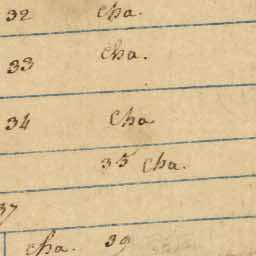 32 Cha.
33 Cha.
34 Cha
35 Cha.
37
Cha. 39